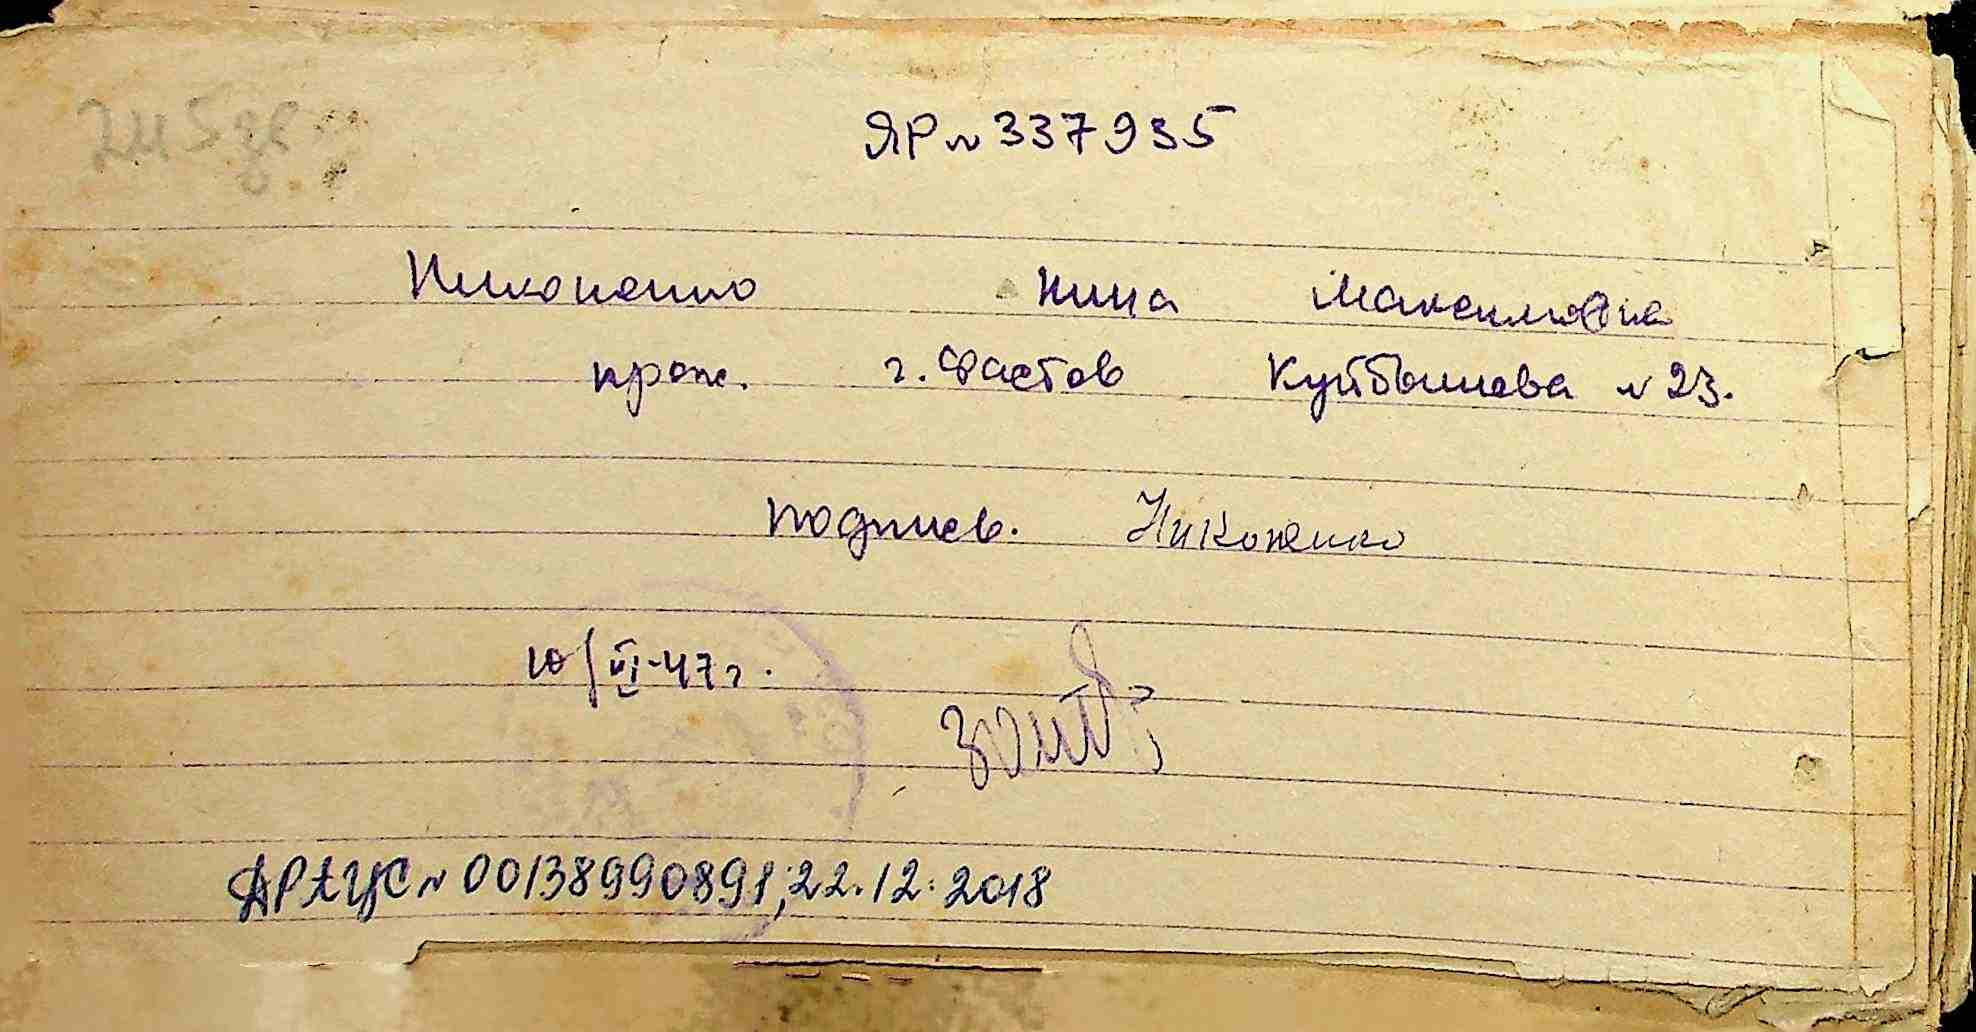 ЯР № 337935
Никоненко Нина Максимовна
прож. г. Фастов Куйбышева № 23.
подпись. Никоненко
10/VI-47 г.
ДРАЦС № 00138990891; 22.12.2018